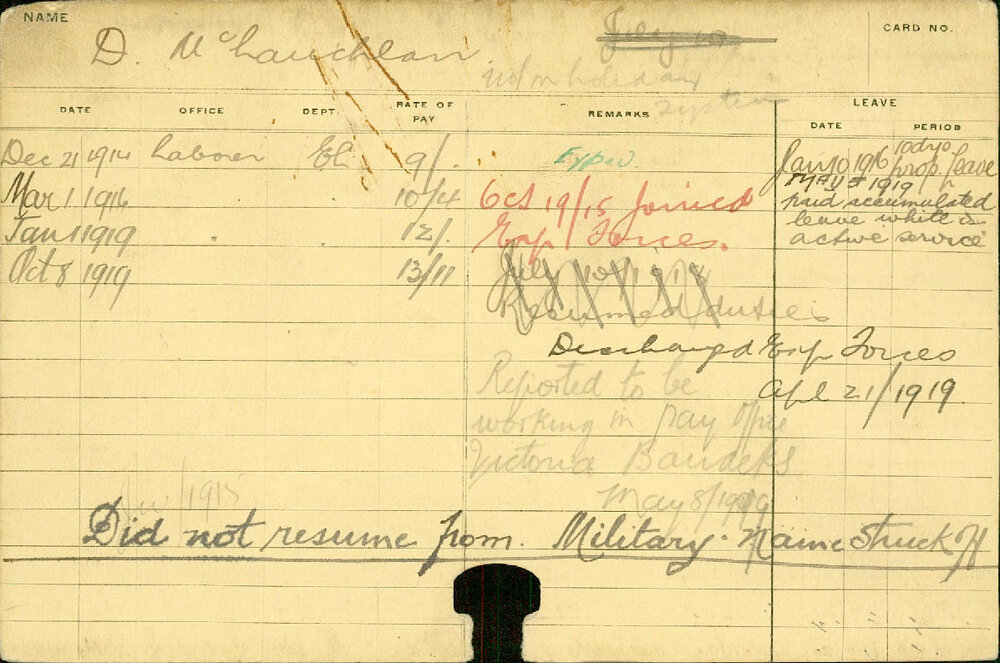 NAME
D. McLauchlan
CARD NO.
not on holiday
System
DATE OFFICE DEPT. RATE OF PAY REMARKS LEAVE
DATE PERIOD
Dec 21 1914 Labourer El. 9/.
Mar 1 1916 10/4 Oct 19/15 Joined
Jan 1 1919 12/. Exp/ Forces.
Oct 8 1919 13/11 July 10/1919
Resumed duties
Jan 10 1916 10 dys
prop. leave
MAY 5 1919
paid accumulated
leave while on
active service
Discharged Exp Forces
Apl 21/1919.
Reported to be
working in Pay Office
Victoria Barracks
May 8/1919
/1915
Did not resume from. Military. Name Struck Off